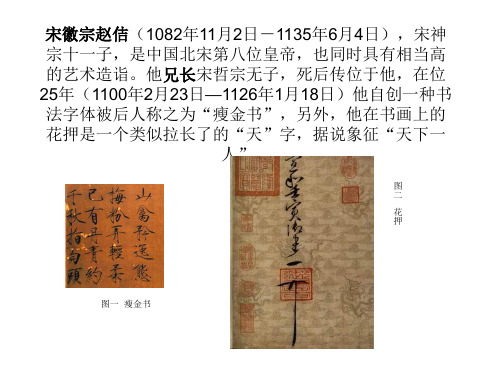 宋徽宗赵佶（1082年11月2日－1135年6月4日），宋神
宗十一子，是中国北宋第八位皇帝，也同时具有相当高
的艺术造诣。他兄长宋哲宗无子，死后传位于他，在位
25年（1100年2月23日—1126年1月18日）他自创一种书
法字体被后人称之为“瘦金书”，另外，他在书画上的
花押是一个类似拉长了的“天”字，据说象征“天下一
人”
山禽矜逸態
梅粉弄輕柔
已有丹青約
千秋指白頭
图一 瘦金书
和壬寅御
图二 花押